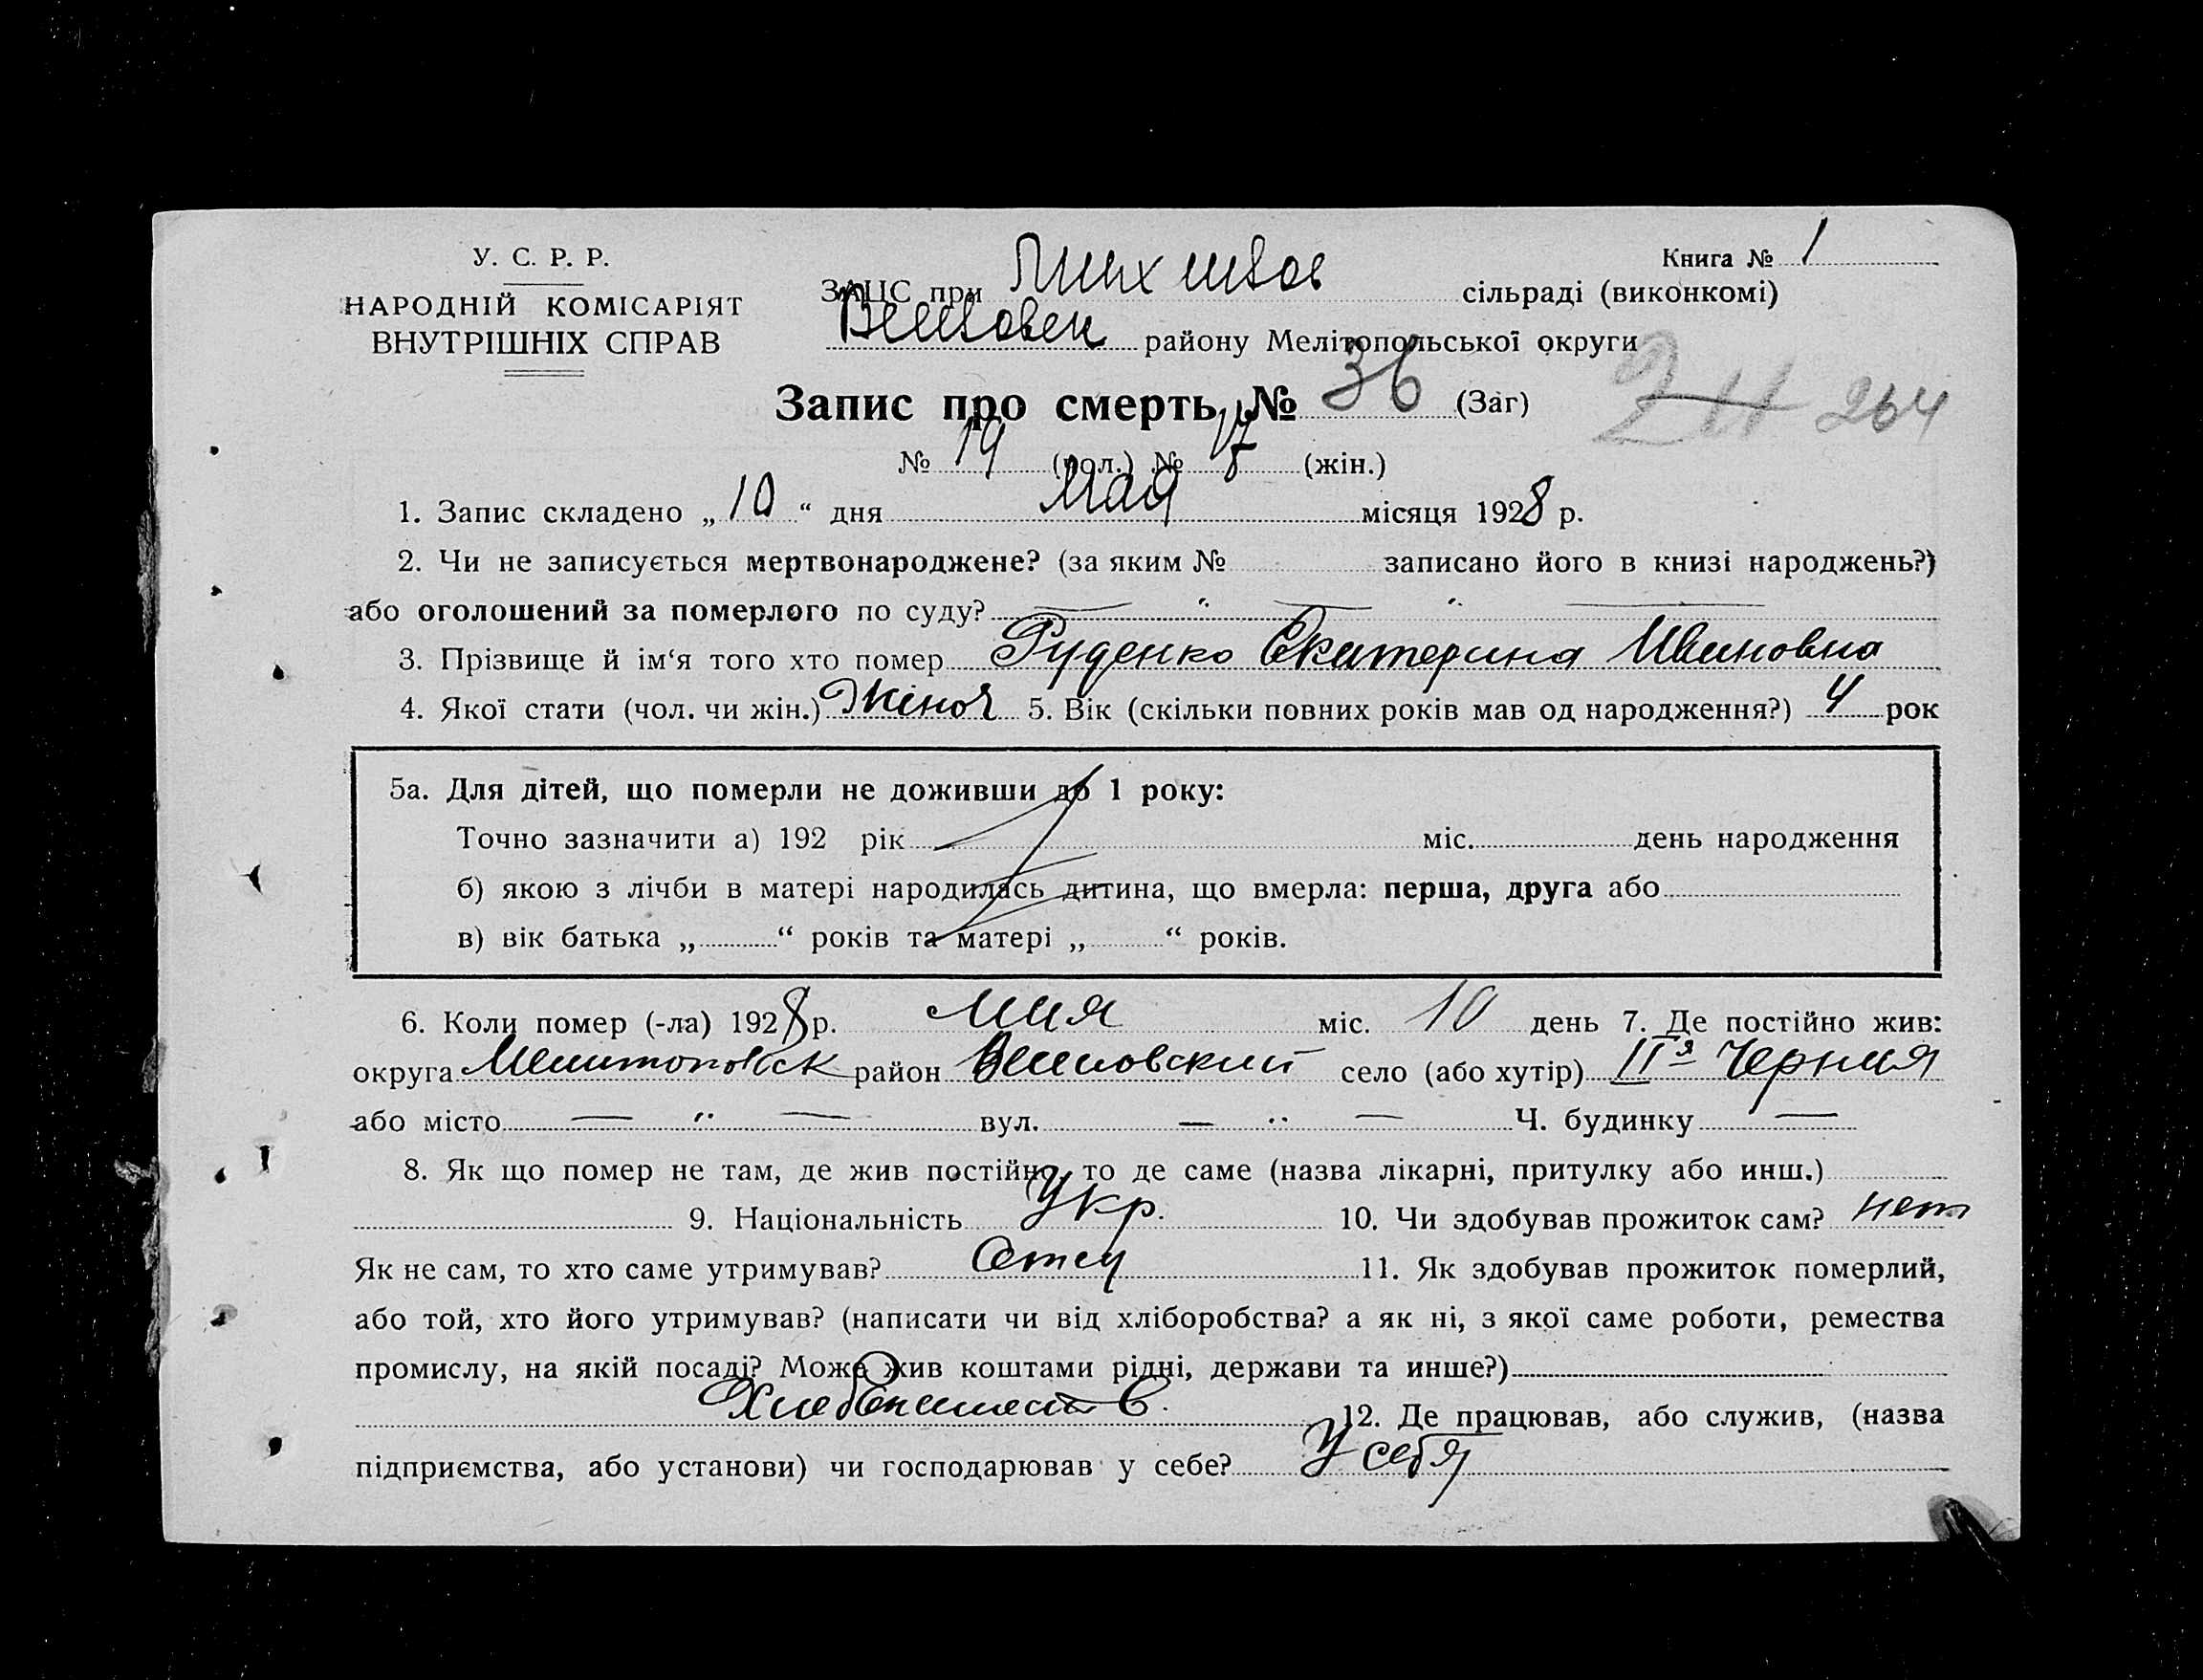 У. С. Р. Р.
НАРОДНІЙ КОМІСАРІЯТ
ВНУТРІШНІХ СПРАВ
Книга № 1
ЗАЦС при сільраді (виконкомі)
району Мелітопольської округи
Запис про смерть, № 36 (Заг)
264
№ 19 (чол.) № 17 (жін.)
1. Запис складено „ 10 “ дня Мая місяця 1928 р.
2. Чи не записується мертвонароджене? (за яким № записано його в книзі народжень?)
або оголошений за померлого по суду? — „ — „ —
3. Прізвище й ім‘я того хто помер Руденко Екатерина Ивановна
4. Якої стати (чол. чи жін.) Жіноч 5. Вік (скільки повних років мав од народження?) 4 рок
5а. Для дітей, що померли не доживши до 1 року:
Точно зазначити а) 192 рік міс. день народження
б) якою з лічби в матері народилась дитина, що вмерла: перша, друга або
в) вік батька „ “ років та матері „ “ років.
6. Коли помер (-ла) 1928 р. Мая міс. 10 день 7. Де постійно жив:
округа Мелитопольск район Веселовский село (або хутір) IIя Черная
або місто — „ — вул. — „ — Ч. будинку —
8. Як що помер не там, де жив постійно, то де саме (назва лікарні, притулку або инш.)
9. Національність Укр. 10. Чи здобував прожиток сам? нет
Як не сам, то хто саме утримував? Отец 11. Як здобував прожиток померлий,
або той, хто його утримував? (написати чи від хліборобства? а як ні, з якої саме роботи, ремества
промислу, на якій посаді? Може жив коштами рідні, держави та инше?)
12. Де працював, або служив, (назва
підприємства, або установи) чи господарював у себе? У себя